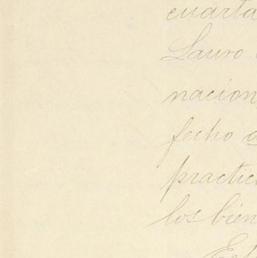 cuarta
Lauro
nacion
fecho
practic
los bien